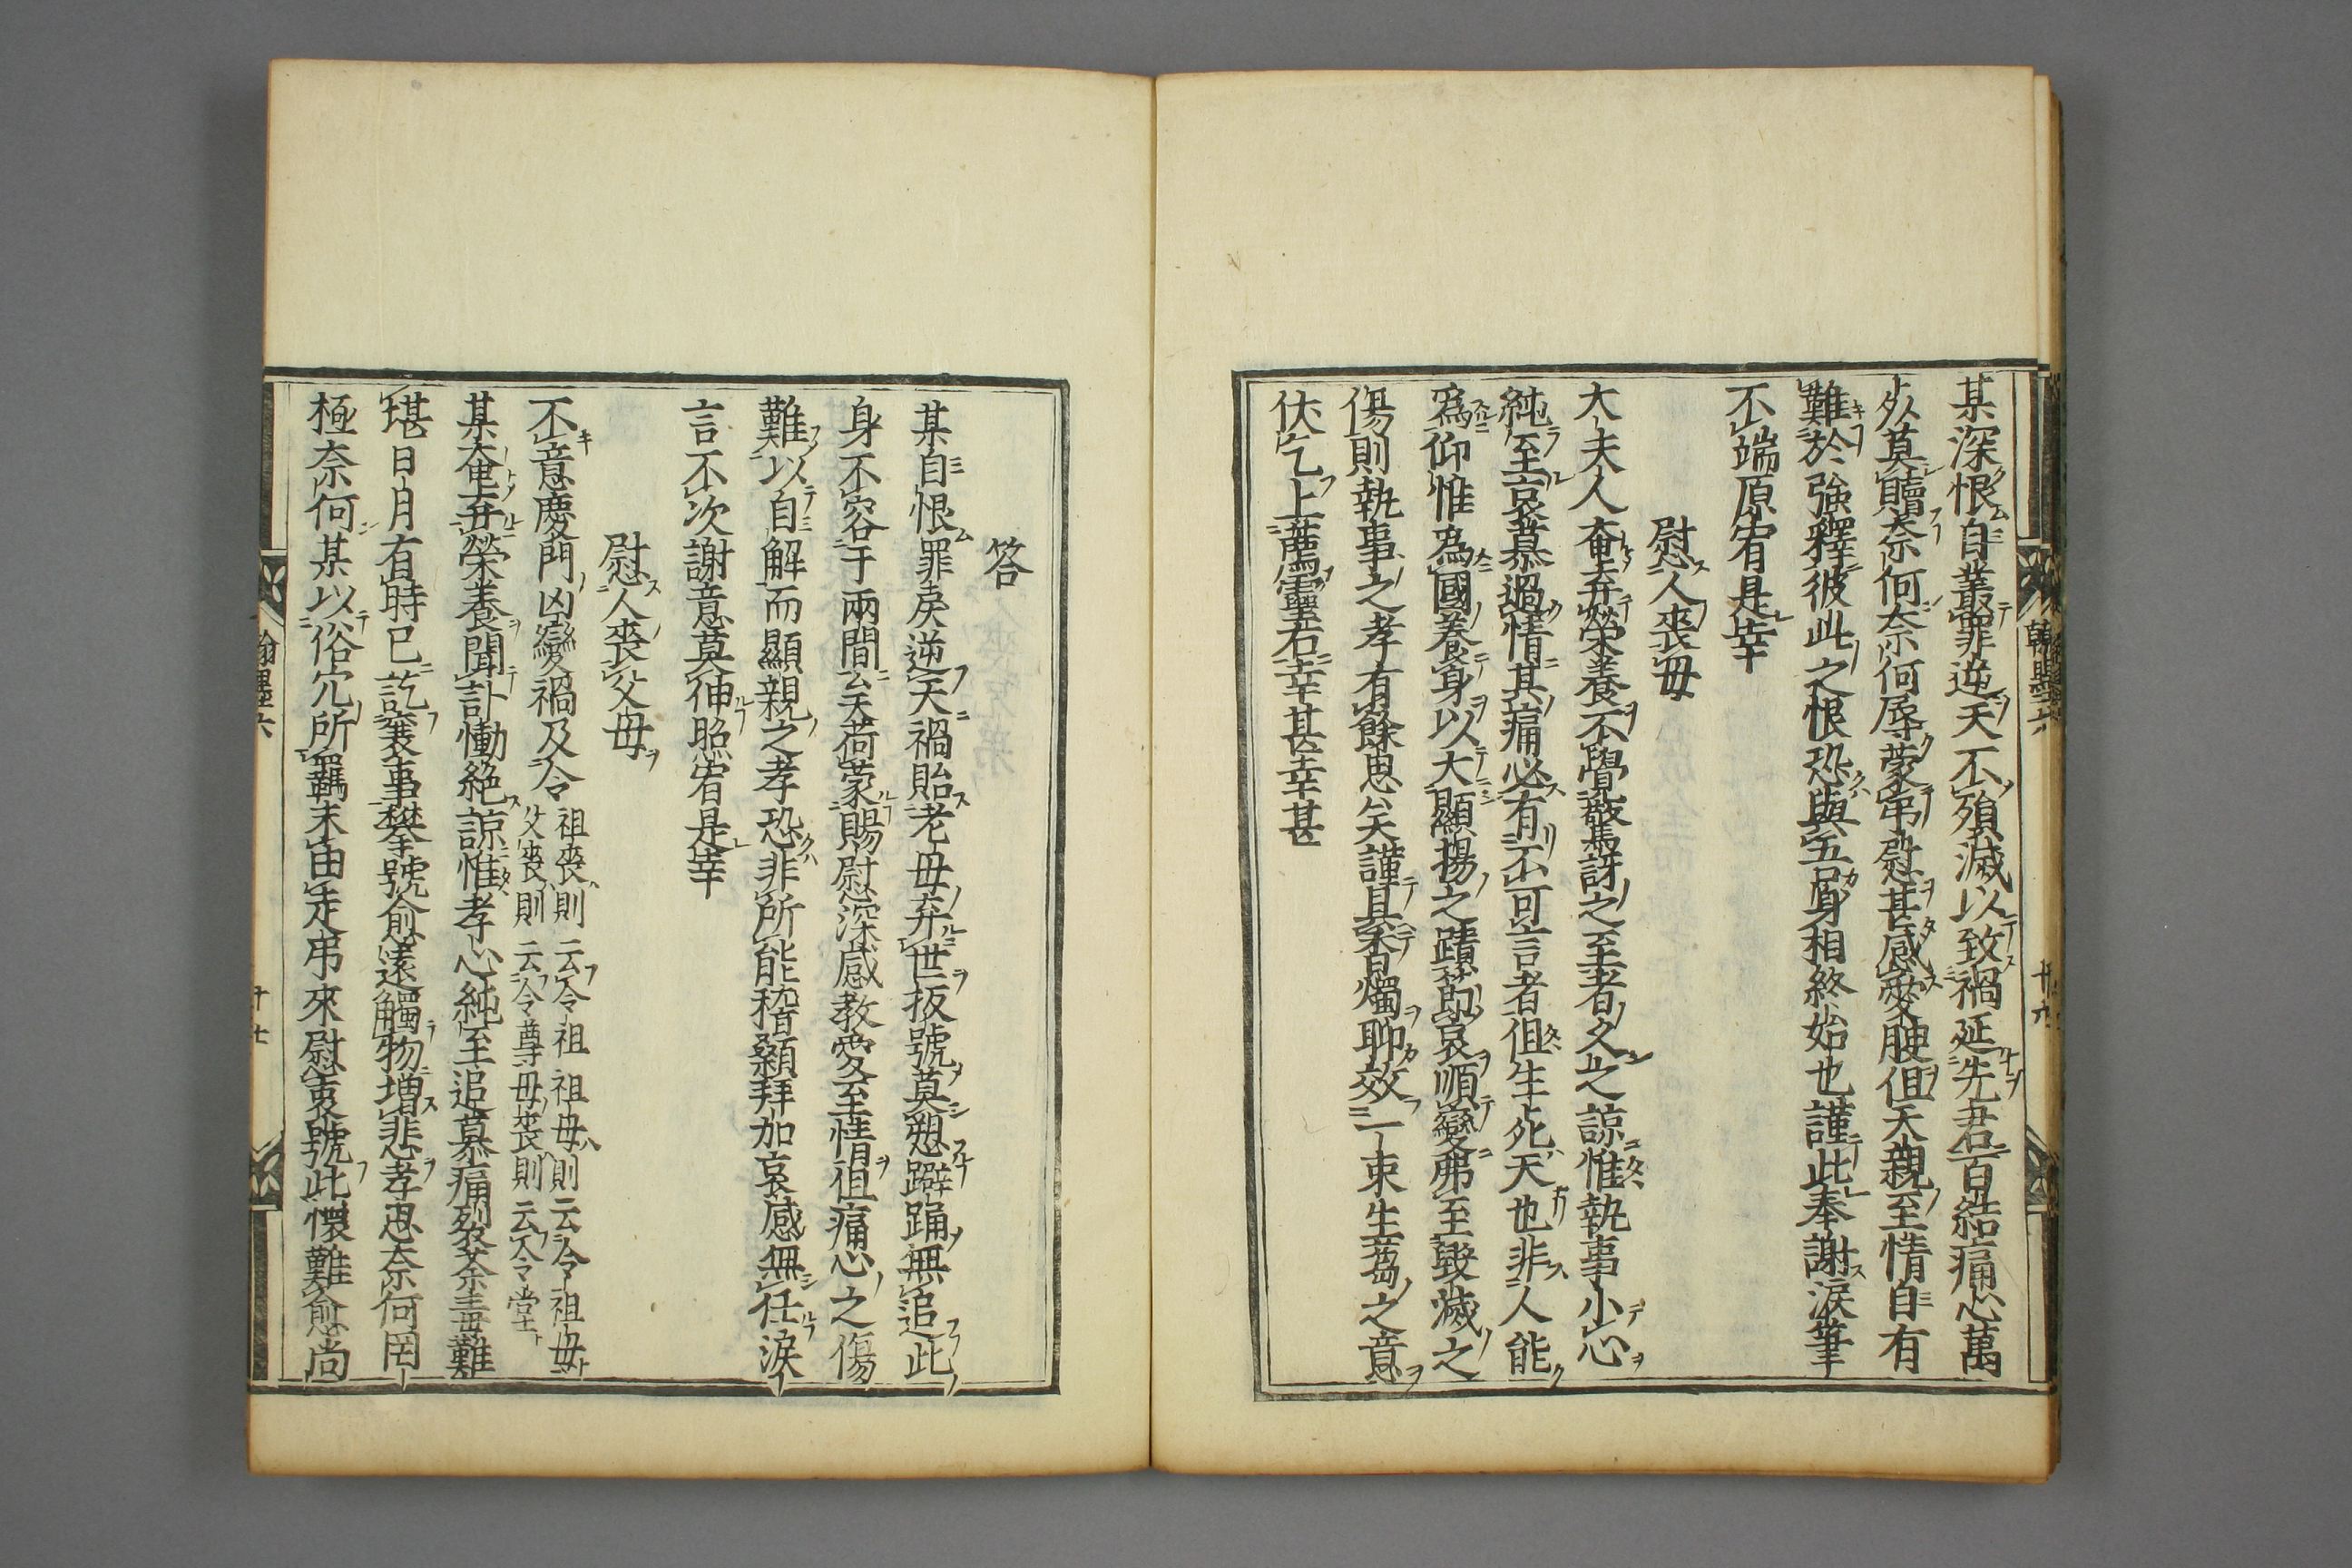 某深恨自叢罪逆天不殞滅以致禍延先君百結痛心萬
死莫贖奈何奈何辱蒙弔慰甚感愛腴但天親至情自有
難於強釋彼此之恨恐與吾身相終始也謹此奉謝淚筆
不端原宥是幸
慰人喪母
大夫人奄弃榮養不覺驚訝之至者久之諒惟執事小心
純至哀慕過情其痛必有不可言者但生死天也非人能
爲仰惟爲國養身以大顯揚之蹟節哀順變弗至毀滅之
傷則執事之孝有餘思矣謹具香燭聊效一束生蒭之意
伏乞上薦靈右幸甚幸甚
答
某自恨罪戾逆天禍貽老母弃世扳號莫愬躃踊無追此
身不容于兩間矣荷蒙賜慰深感教愛至情但痛心之傷
難以自解而顯親之孝恐非所能稽顙拜加哀感無任淚
言不次謝意莫伸照宥是幸
慰人喪父母
不意慶門凶變禍及令
祖喪則云令祖祖母則云令祖母
父喪則云令尊母喪則云令堂
某奄弃榮養聞訃慟絶諒惟孝心純至追慕痛裂荼毒難
堪日月有時已訖襄事攀號愈遠觸物增悲孝思奈何罔
極奈何某以俗冗所羈末由走弔來慰衷號此懷難愈尚
翰墨六
十七